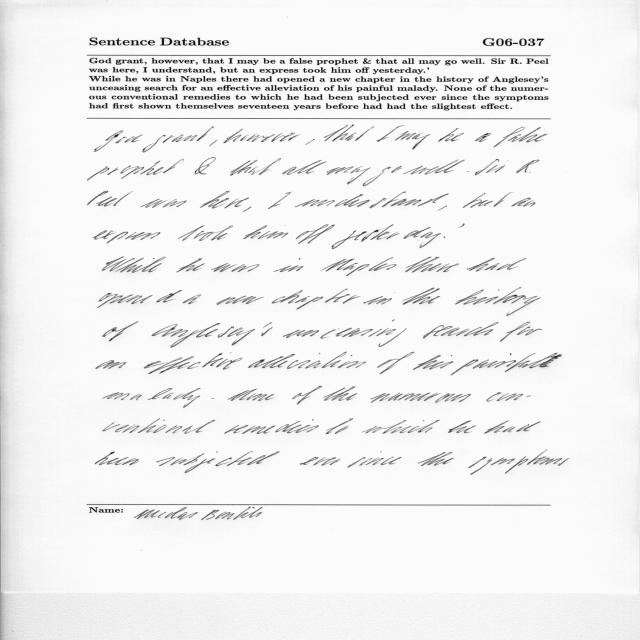 Sentence Database G06-037
God grant, however, that I may be a false prophet & that all may go well. Sir R. Peel
was here, I understand, but an express took him off yesterday.'
While he was in Naples there had opened a new chapter in the history of Anglesey's
unceasing search for an effective alleviation of his painful malady. None of the numer-
ous conventional remedies to which he had been subjected ever since the symptoms
had first shown themselves seventeen years before had had the slightest effect.
God grant, however, that I may be a false
prophet & that all may go well. Sir R
Peel was here, I understand, but an
express took him off yesterday.'
While he was in Naples there had
opened a new chapter in the history
of Anglesey's unceasing search for
an effective alleviation of his painful
malady. None of the numerous con-
ventional remedies to which he had
been subjected ever since the symptoms
Name: